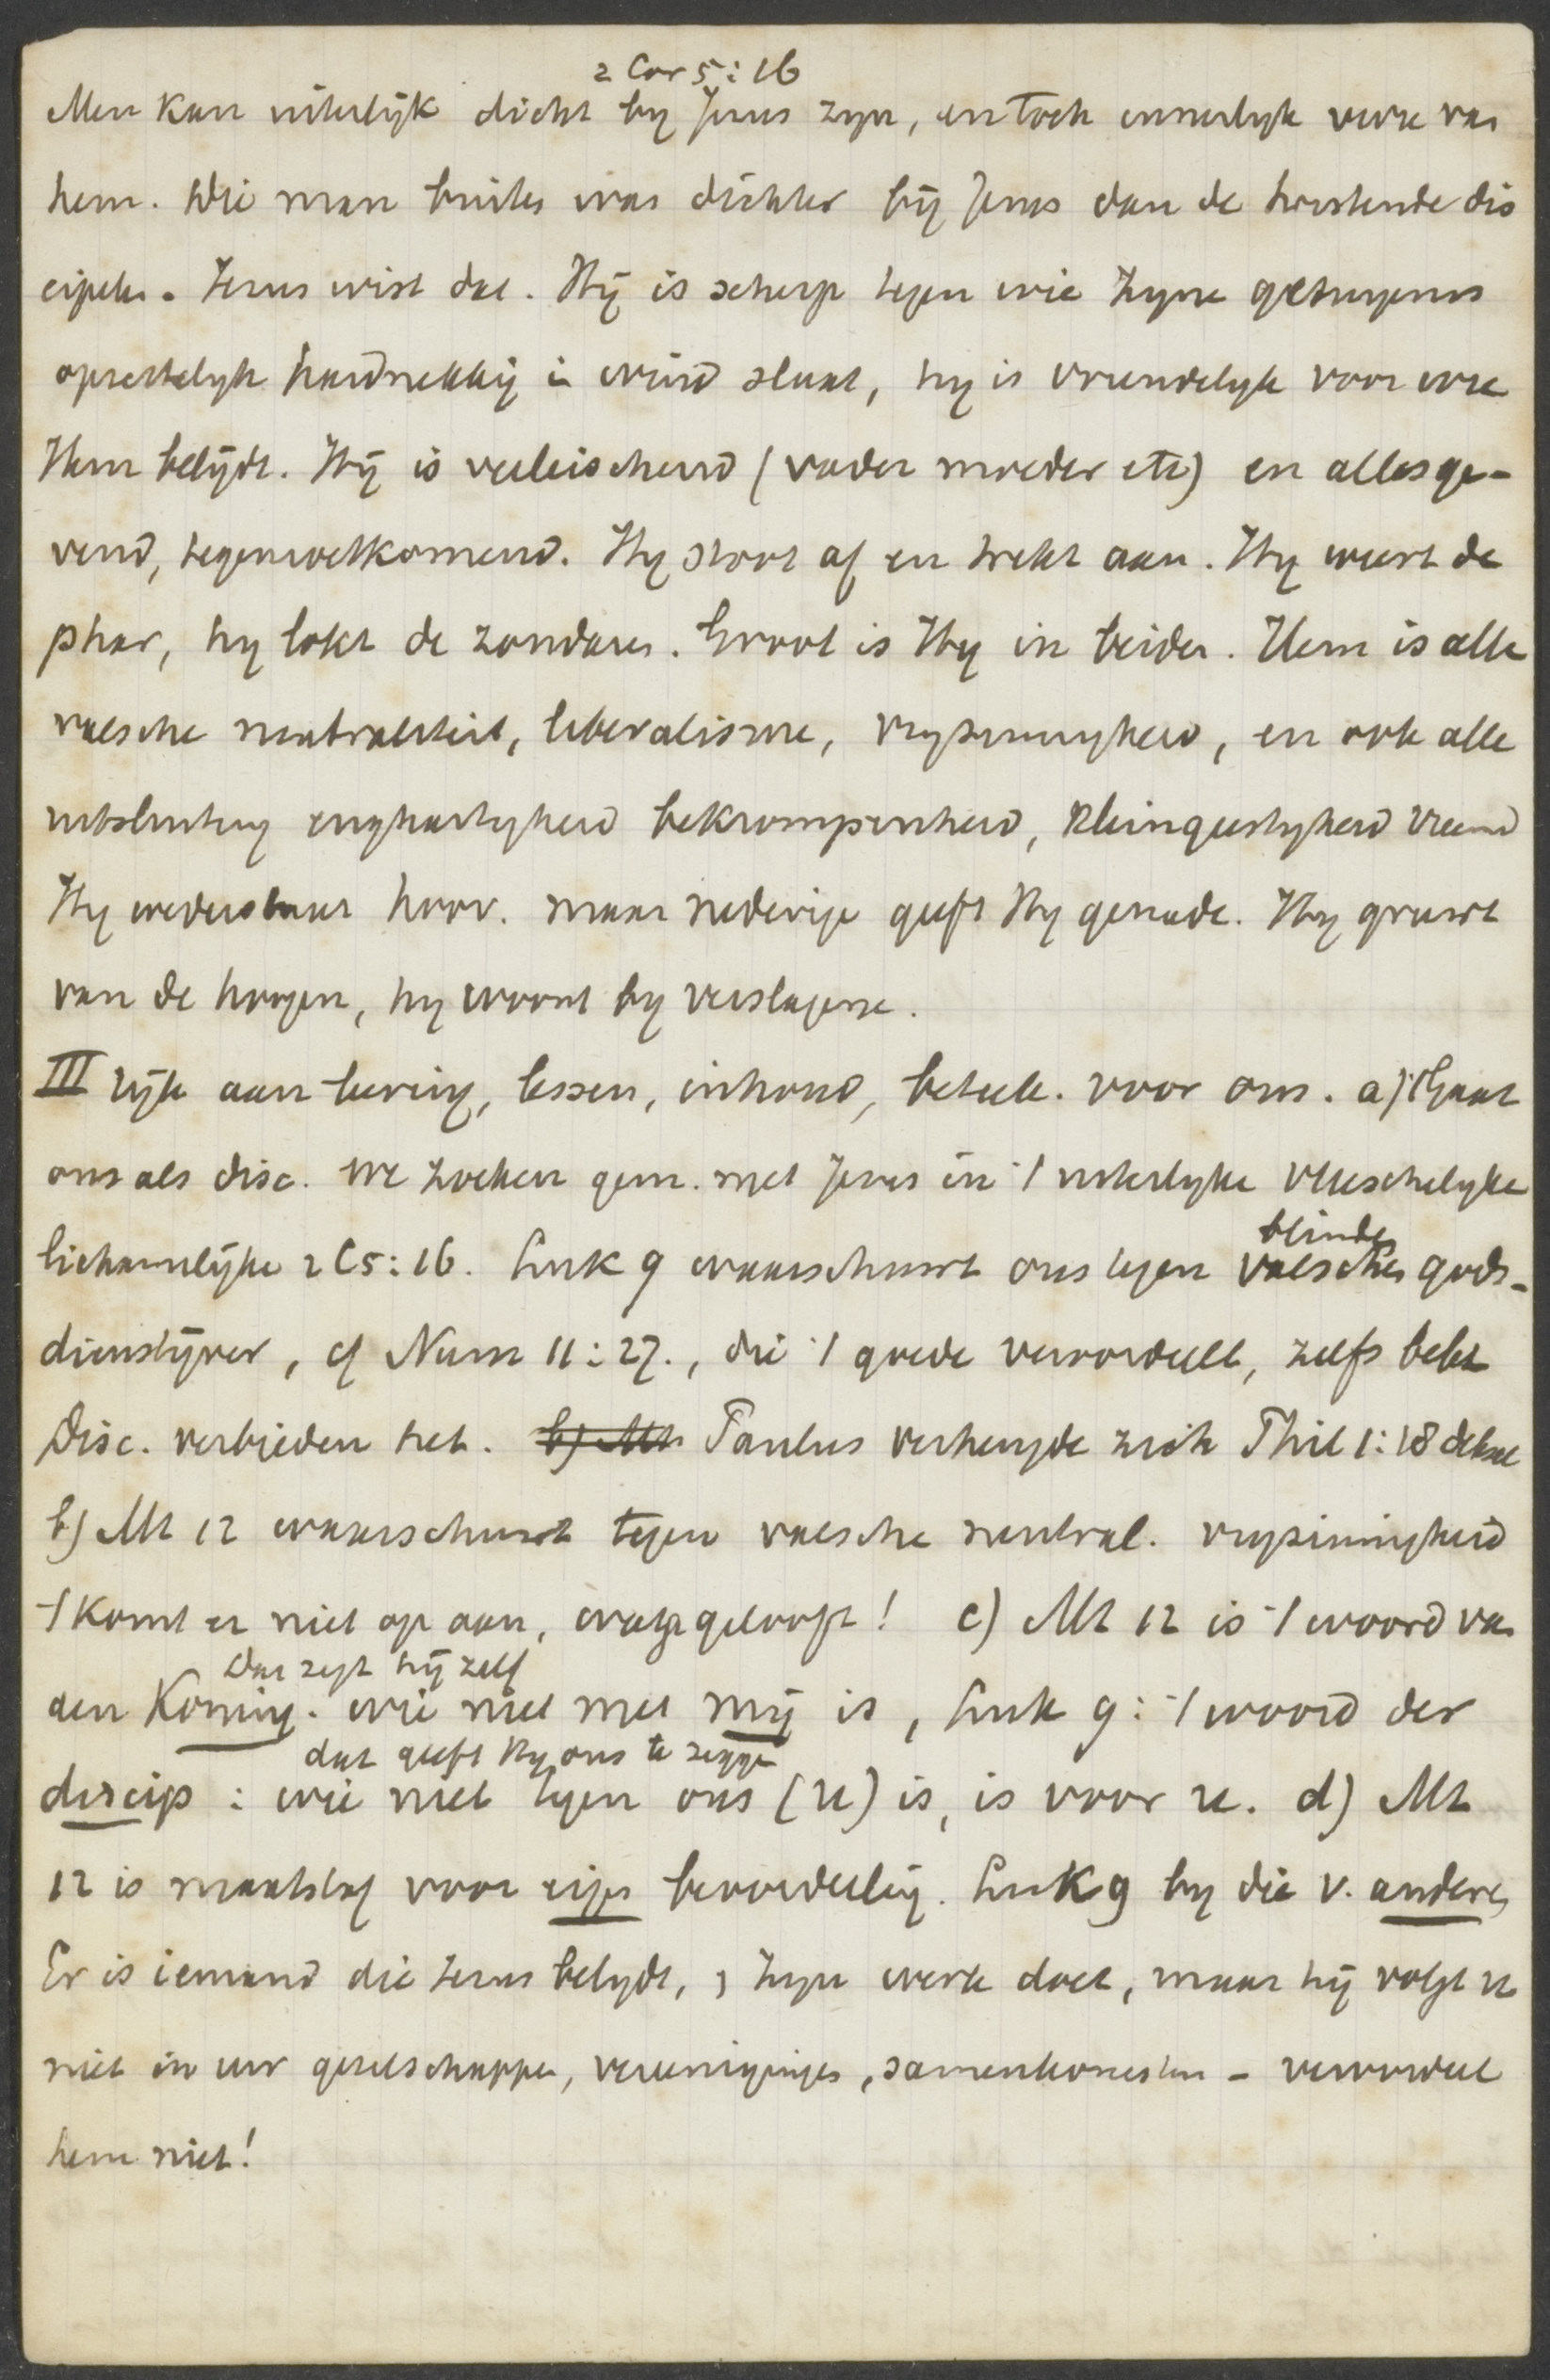 2 Cor 5:16
Men kan uiterlijk dicht by Jezus zyn, en toch innerlyk verre van
hem. Die man buiten was dichter bij Jezus dan de twistende dis
cipelen. Jezus wist dat. Hij is scherp tegen wie Zyne getuigenis
opzettelyk hardnekkig in wind slaat, hy is vriendelyk voor wie
Hem belijdt. Hij is veeleischend (vader moeder etc) en allesge-
vend, tegemoetkomend. Hy stoot af en trekt aan. Hy weert de
phar, hy lokt de zondaren. Groot is Hy in beiden. Hem is alle
valsche neutraliteit, liberalisme, vryzinnigheid, en ook alle
uitsluiting enghartigheid bekrompenheid, kleingeestigheid vreemd
Hy wederstaat hoov. maar nederige geeft Hy genade. Hy gruwt
van de hoogen, hy woont by verslagene.
III rijk aan leering, lessen, inhoud, beteek. voor ons. a) 't Gaat
ons als disc. We zoeken gem. met Jezus in 't uiterlyke vleeschelyke
blinde
lichamelijke 2 C 5:16. Luk 9 waarschuwt ons tegen valsche gods-
dienstijver, cf Num 11:27., die 't goede veroordeelt, zelfs belet
Disc. verbieden het. b) Mt Paulus verheugde zich Phil 1:18
b) Mt 12 waarschuwt tegen valsche neutral. vryzinnigheid
't komt er niet op aan, wat ge gelooft! c) Mt 12 is 't woord van
Dat zegt hij zelf
den Koning. wie niet met mij is, Luk 9: 't woord der
dat geeft Hy ons te zeggen
discip: wie niet tegen ons (u) is, is voor u. d) Mt
12 is maatstaf voor eigen beoordeelig. Luk 9 by die v. anderen
Er is iemand die Jezus belydt, Zyn werk doet, maar hij volgt u
niet in uw gezelschappen, vereenigingen, samenkomsten - veroordeel
hem niet!